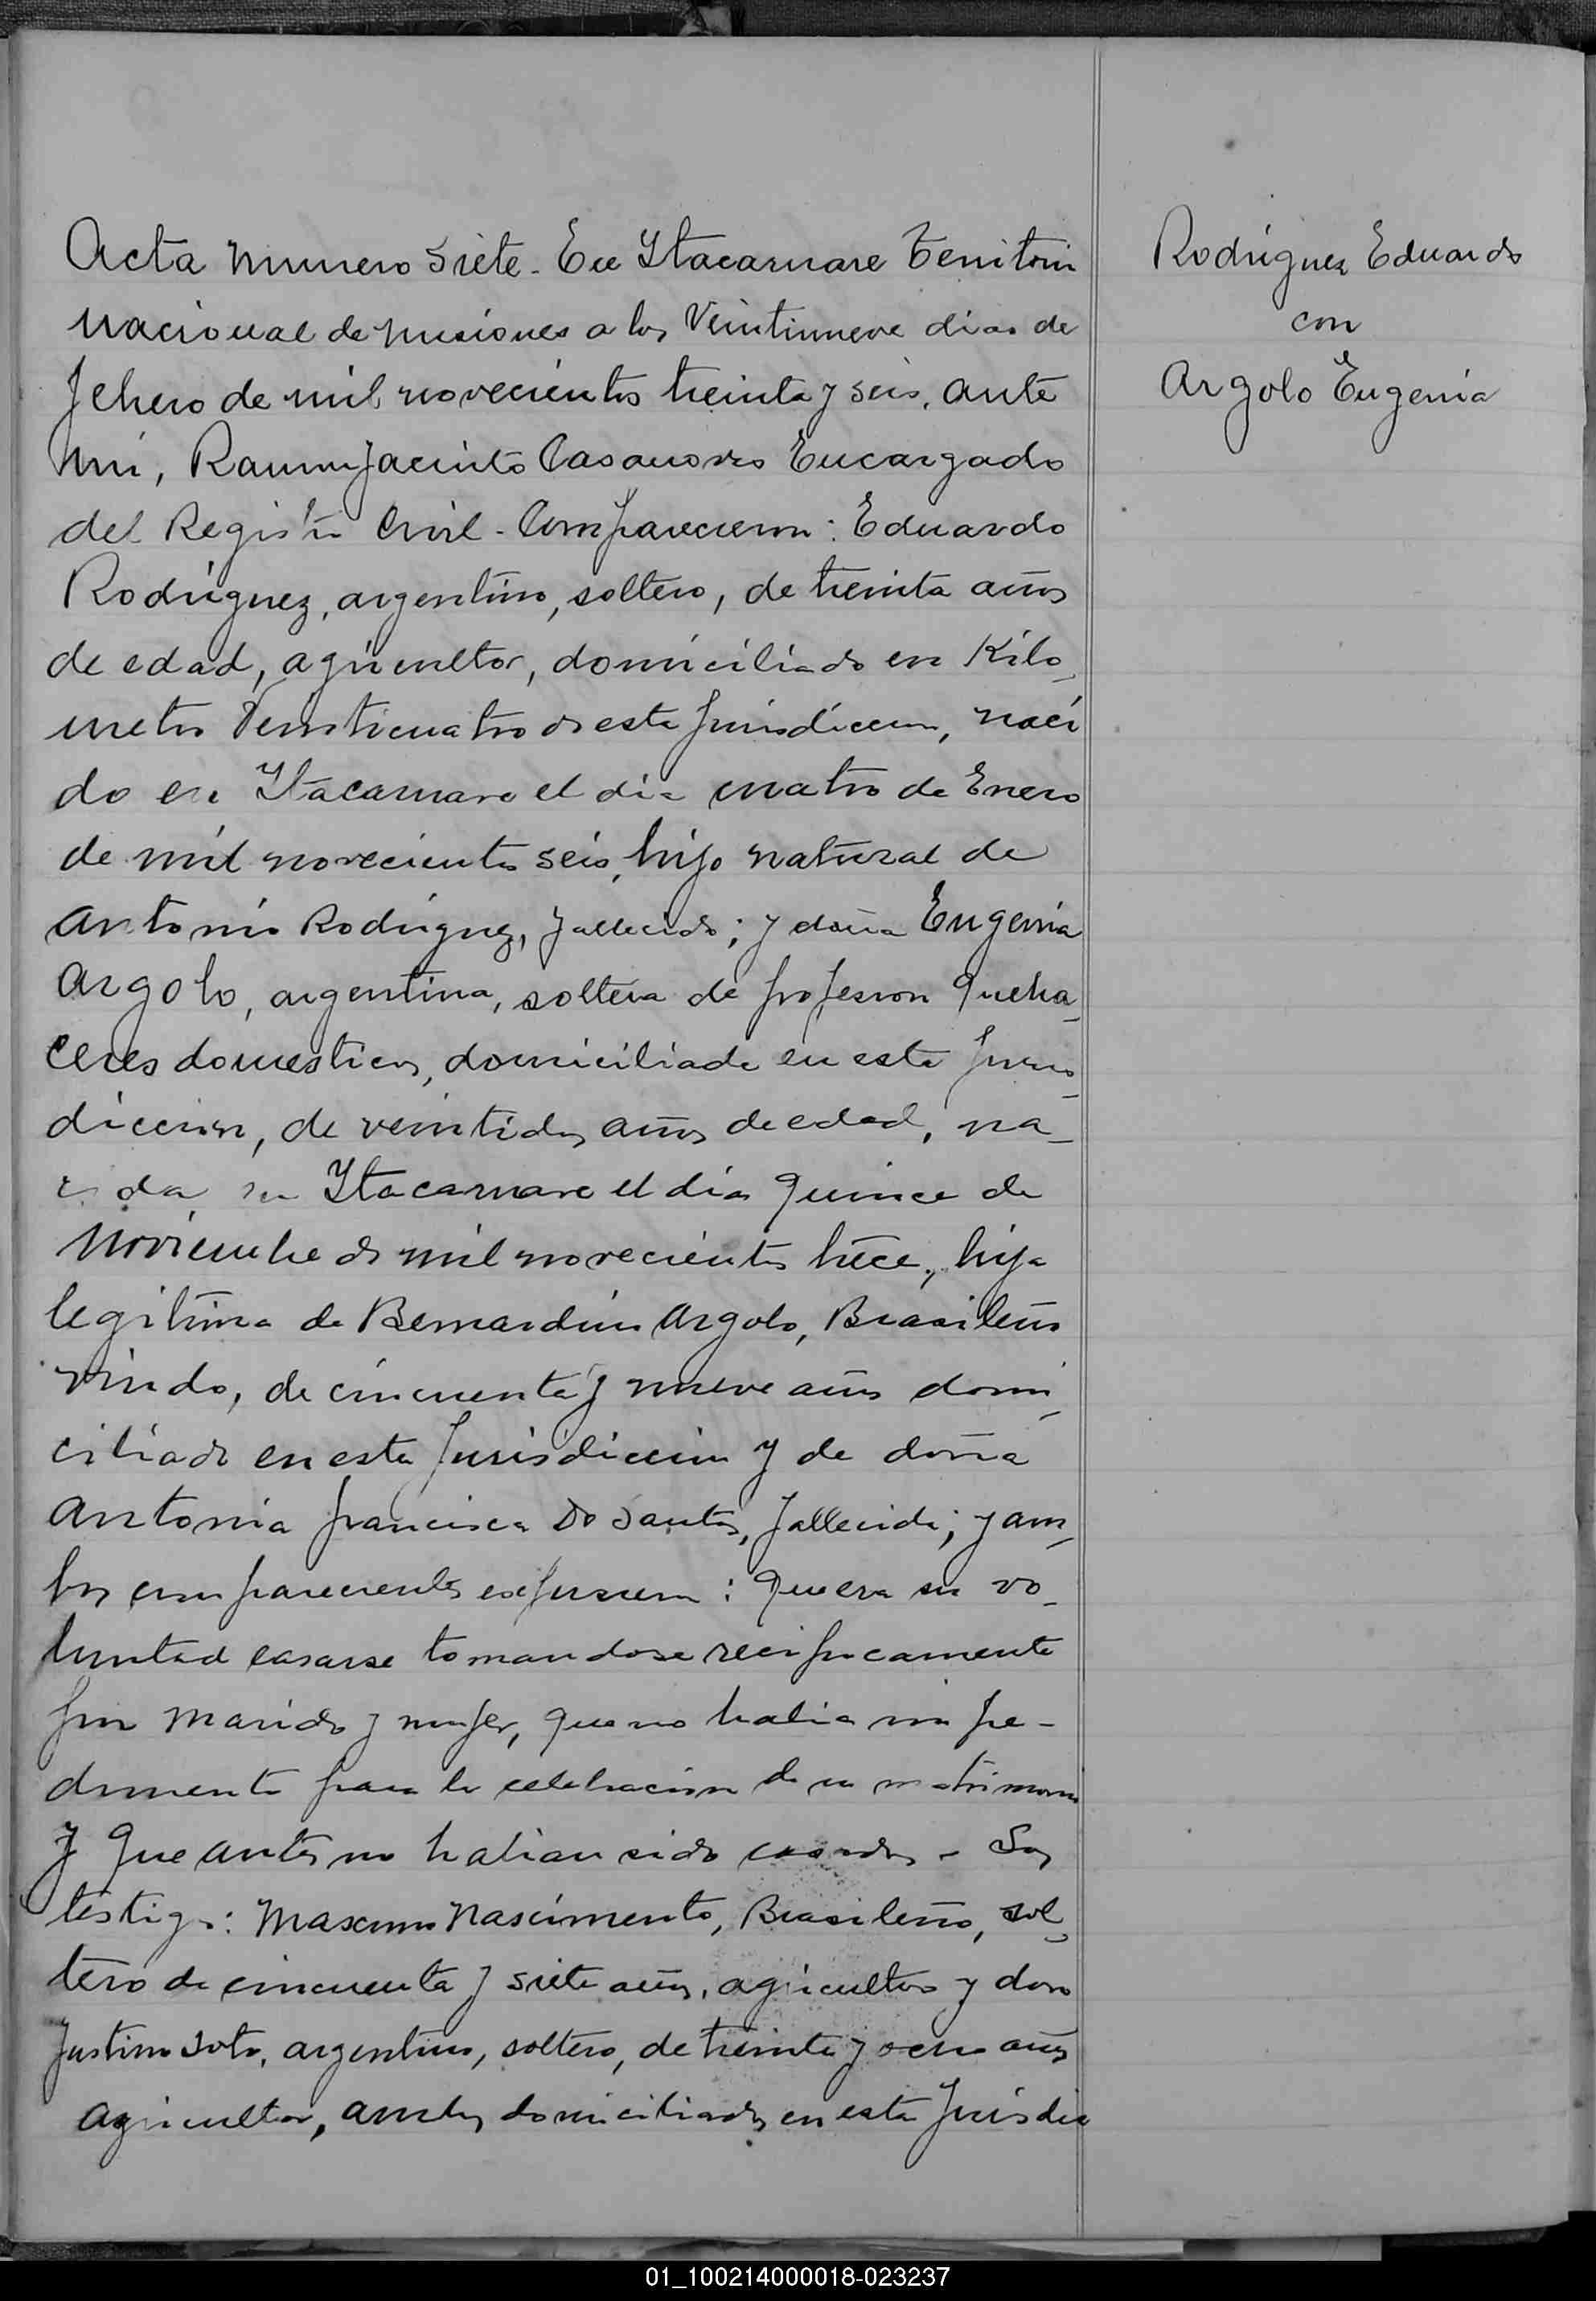 Acta numero siete - En Itacaruare Territorio
nacional de misiones a los Veintinueve dias de
Febrero de mil novecientos treinta y seis, ante
mi, Ramon Jacinto Casanovas Encargado
del Registro Civil - Comparecieron: Eduardo
Rodriguez, argentino, soltero, de treinta años
de edad, agricultor, domiciliado en Kilo-
metro Veinticuatro de esta Jurisdiccion, naci
do en Itacaruare el dia cuatro de Enero
de mil novecientos seis, hijo natural de
Antonio Rodriguez, fallecido; y doña Eugenia
Argolo, argentina, soltera de profesion Queha-
ceres domesticos, domiciliada en esta Juris-
diccion, de veintidos años de edad, na-
cida en Itacaruare el dia quince de
Noviembre de mil novecientos trece, hija
legitima de Bernardino Argolo, Brasileño
viudo, de cincuenta y nueve años domi-
ciliado en esta Jurisdiccion y de doña
Antonia Francisca Do Santos, fallecida; y am-
bos comparecientes expusieron: Que era su vo-
luntad casarse tomandose reciprocamente
por marido y mujer, que no habia impe-
dimento para la celebracion de su matrimonio
y Que antes no habian sido casados - Son
testigos: Maximo Nascimento, Brasileño, sol-
tero de cincuenta y siete años, agricultor y don
Justino Soto, argentino, soltero, de treinta y ocho años
agricultor, ambos domiciliados en esta Jurisdic
Rodriguez Eduardo
con
Argolo Eugenia
01_100214000018-023237